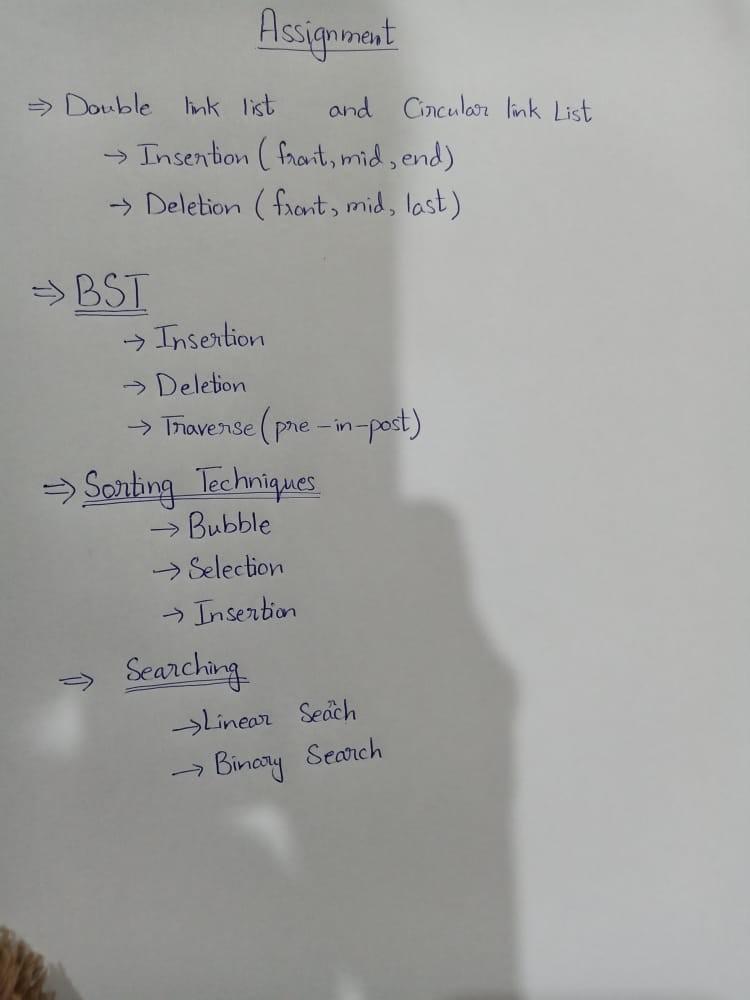 Assignment
⇒ Double link list and Circular link List
→ Insertion (front, mid, end)
→ Deletion (front, mid, last)
⇒ BST
→ Insertion
→ Deletion
→ Traverse (pre-in-post)
⇒ Sorting Techniques
→ Bubble
→ Selection
→ Insertion
⇒ Searching
→ Linear Search
→ Binary Search